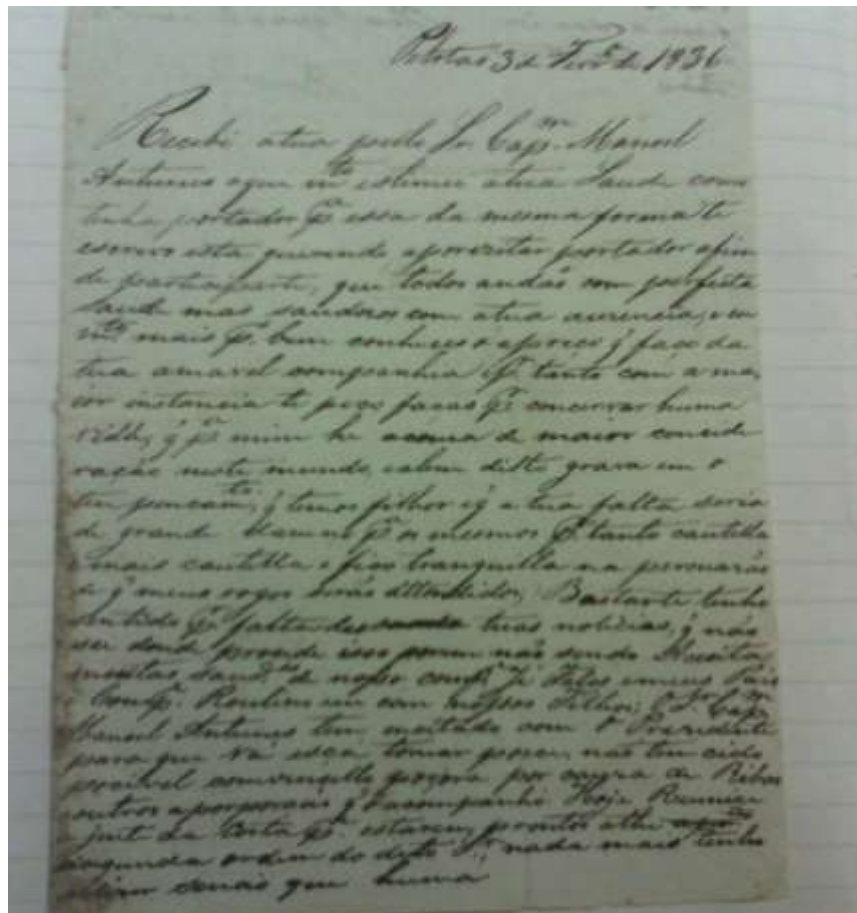 Pelotas 3 de Fevr.º de 1836
Recebi a tua pello Sr. Cap.m Manoel
Antunes o que m.to estimei a tua Saude como
tinha portador p.ª essa da mesma forma te
escrevo esta querendo aporveitar portador afim
de participarte, que todos andaõ com perfeita
Saude mas saudosos com a tua auzencia, e eu
m.to mais p.r bem conheceres o apreço q̃ faço da
tua amavel companhia p.r tanto com a ma
ior instancia te peço faças p.r concervar huma
vida, q̃ p.ª mim he a couza de maior concide
ração neste mundo, alem disto grava em o
teu pencam.to, q̃ temos filhos e q̃ a tua falta seria
de grande damno p.ª os mesmos p.r tanto cautella
e mais cautella e fico tranquilla na percuazaõ
de q̃ meus rogos seraõ attendidos, Bastante tenho
sentido p.r falta de tuas noticias, q̃ naõ
sei donde provem isso porem naõ sendo
muitas saud.es de nosso comp.e e meus Pais
e Comp.e com nossos Filhos; O Sr. Cap.m
Manoel Antunes tem com o Prezidente
para que vá essa tomar posse, naõ tem cido
possivel por cauza de
outros q̃ o acompanhé Hoje
a gente da Costa p.ª estarem prontos athe
segunda ordem do dito Sr.; nada mais tenho
a dizer senaõ que huma